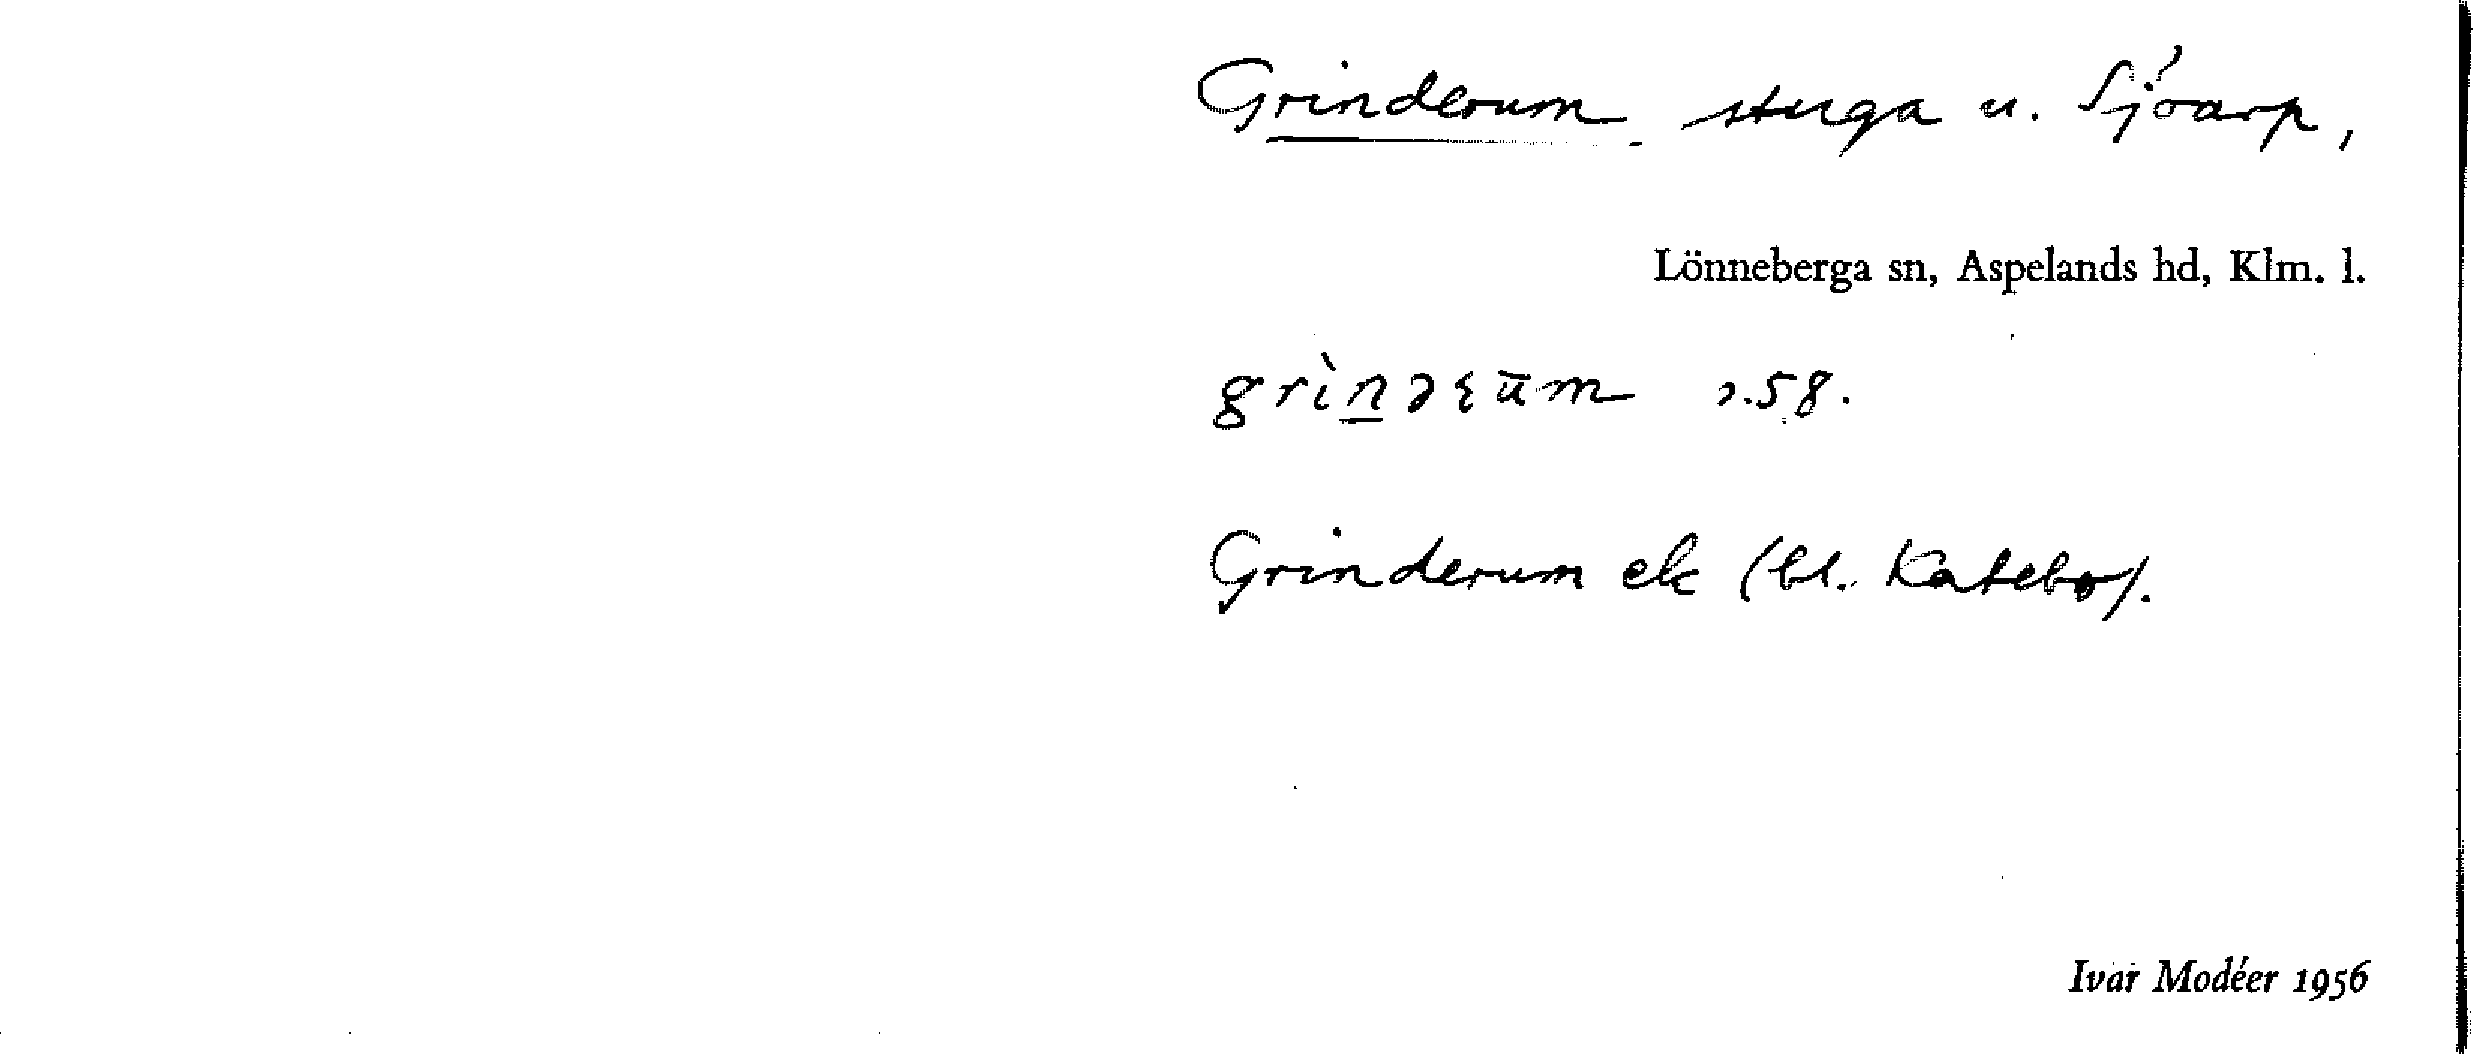 Grinderum stuga u. Sjöarp,
Lönneberga sn, Aspelands hd, Klm. l.
58.
Grinderum ek (bl. Katebo).
Ivar Modéer 1956